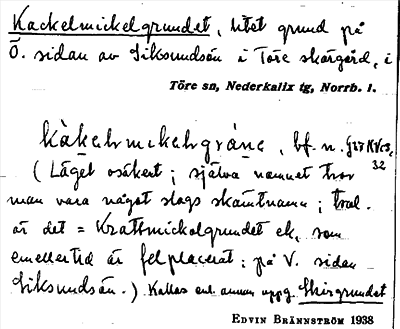 Kackelmickelgrundet, litet grund på
Ö. sidan av Siksundsön i Töre skärgård, i
Töre sn, Nederkalix tg, Norrb. l.
bf. n.
32
(Läget osäkert; själva namnet tror
man vara något slags skämtnamn; trol.
är det = Krattmickelgrundet ek, som
emellertid är felplacerat; på V. sidan
Siksundsön.) Kallas enl. annan uppg. Skirgrundet
EDVIN BRÄNNSTRÖM 1938